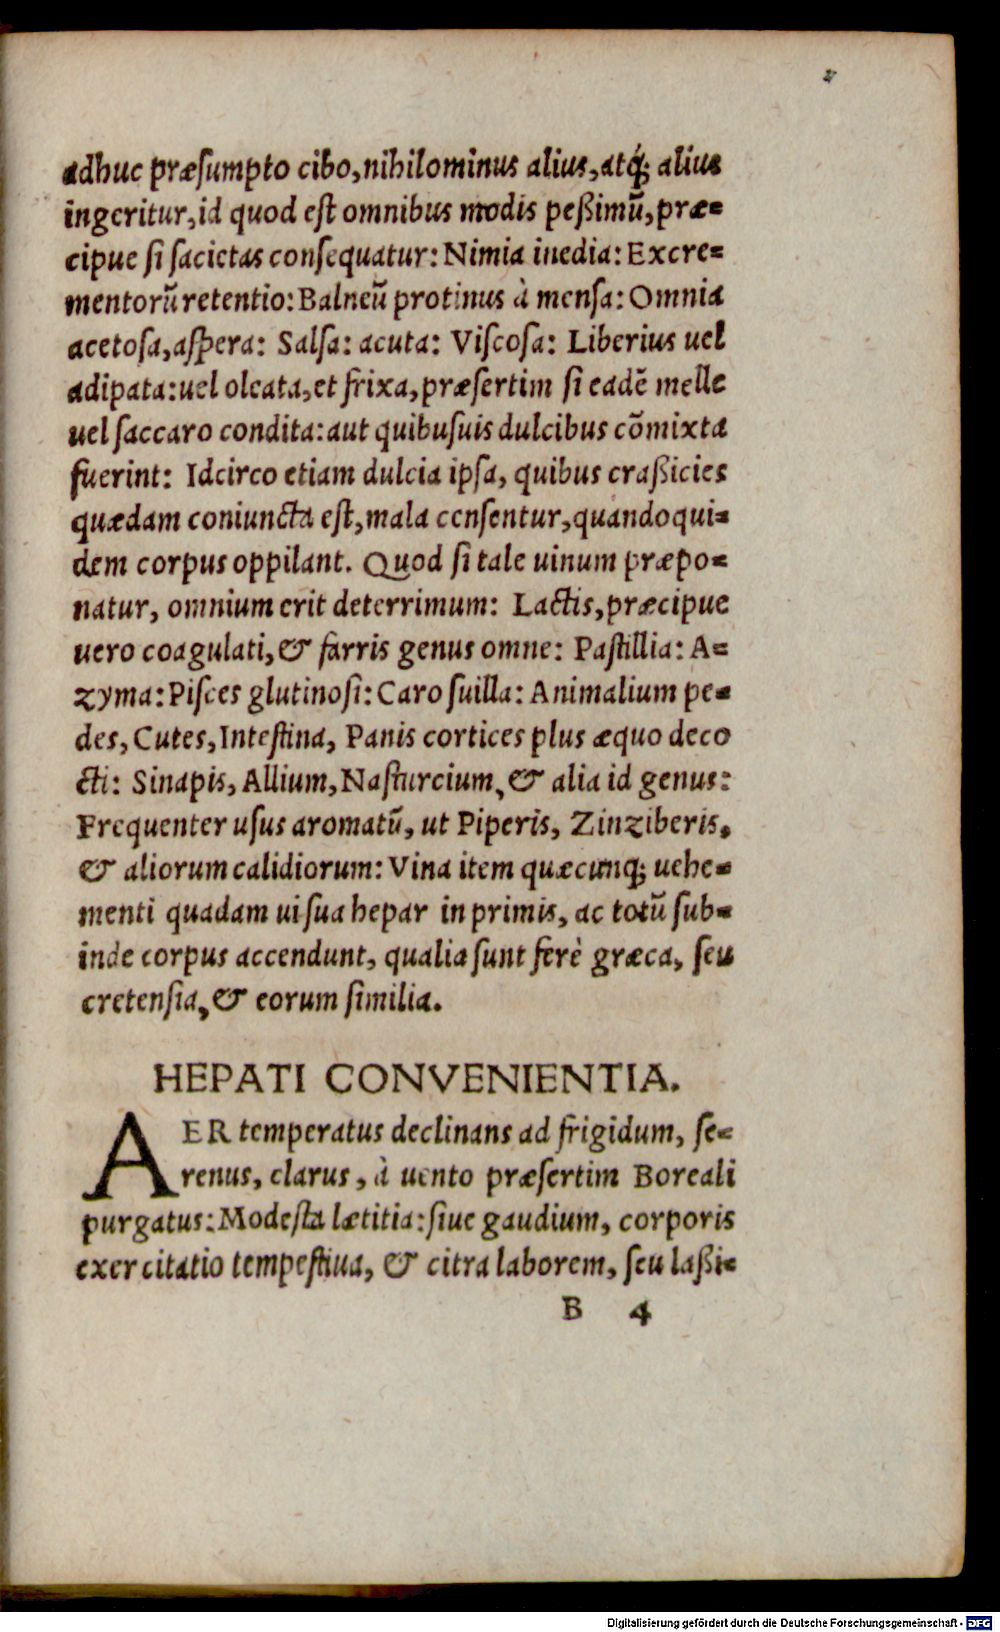 adhuc præſumpto cibo, nihilominus alius, atq́; alius
ingeritur, id quod eſt omnibus modis peßimũ, præ=
cipue ſi ſacietas conſequatur: Nimia inedia: Excre=
mentorũ retentio: Balneũ protinus à menſa: Omnia
acetoſa, aſpera: Salſa: acuta: Viſcoſa: Liberius uel
adipata: uel oleata, et frixa, præſertim ſi eadẽ melle
uel ſaccaro condita: aut quibuſuis dulcibus cõmixta
fuerint: Idcirco etiam dulcia ipſa, quibus craßicies
quædam coniuncta eſt, mala cenſentur, quandoqui=
dem corpus oppilant. Quod ſi tale uinum præpo=
natur, omnium erit deterrimum: Lactis, præcipue
uero coagulati, & farris genus omne: Paſtillia: A=
zyma: Piſces glutinoſi: Caro ſuilla: Animalium pe=
des, Cutes, Inteſtina, Panis cortices plus æquo deco
cti: Sinapis, Allium, Naſturcium, & alia id genus:
Frequenter uſus aromatũ, ut Piperis, Zinziberis,
& aliorum calidiorum: Vina item quæcunq; uehe=
menti quadam ui ſua hepar in primis, ac totũ ſub=
inde corpus accendunt, qualia ſunt ferè græca, ſeu
cretenſia, & eorum ſimilia.
HEPATI CONVENIENTIA.
AER temperatus declinans ad frigidum, ſe=
renus, clarus, à uento præſertim Boreali
purgatus: Modeſta lætitia: ſiue gaudium, corporis
exercitatio tempeſtiua, & citra laborem, ſeu laßi=
B 4
Digitalisierung gefördert durch die Deutsche Forschungsgemeinschaft - DFG